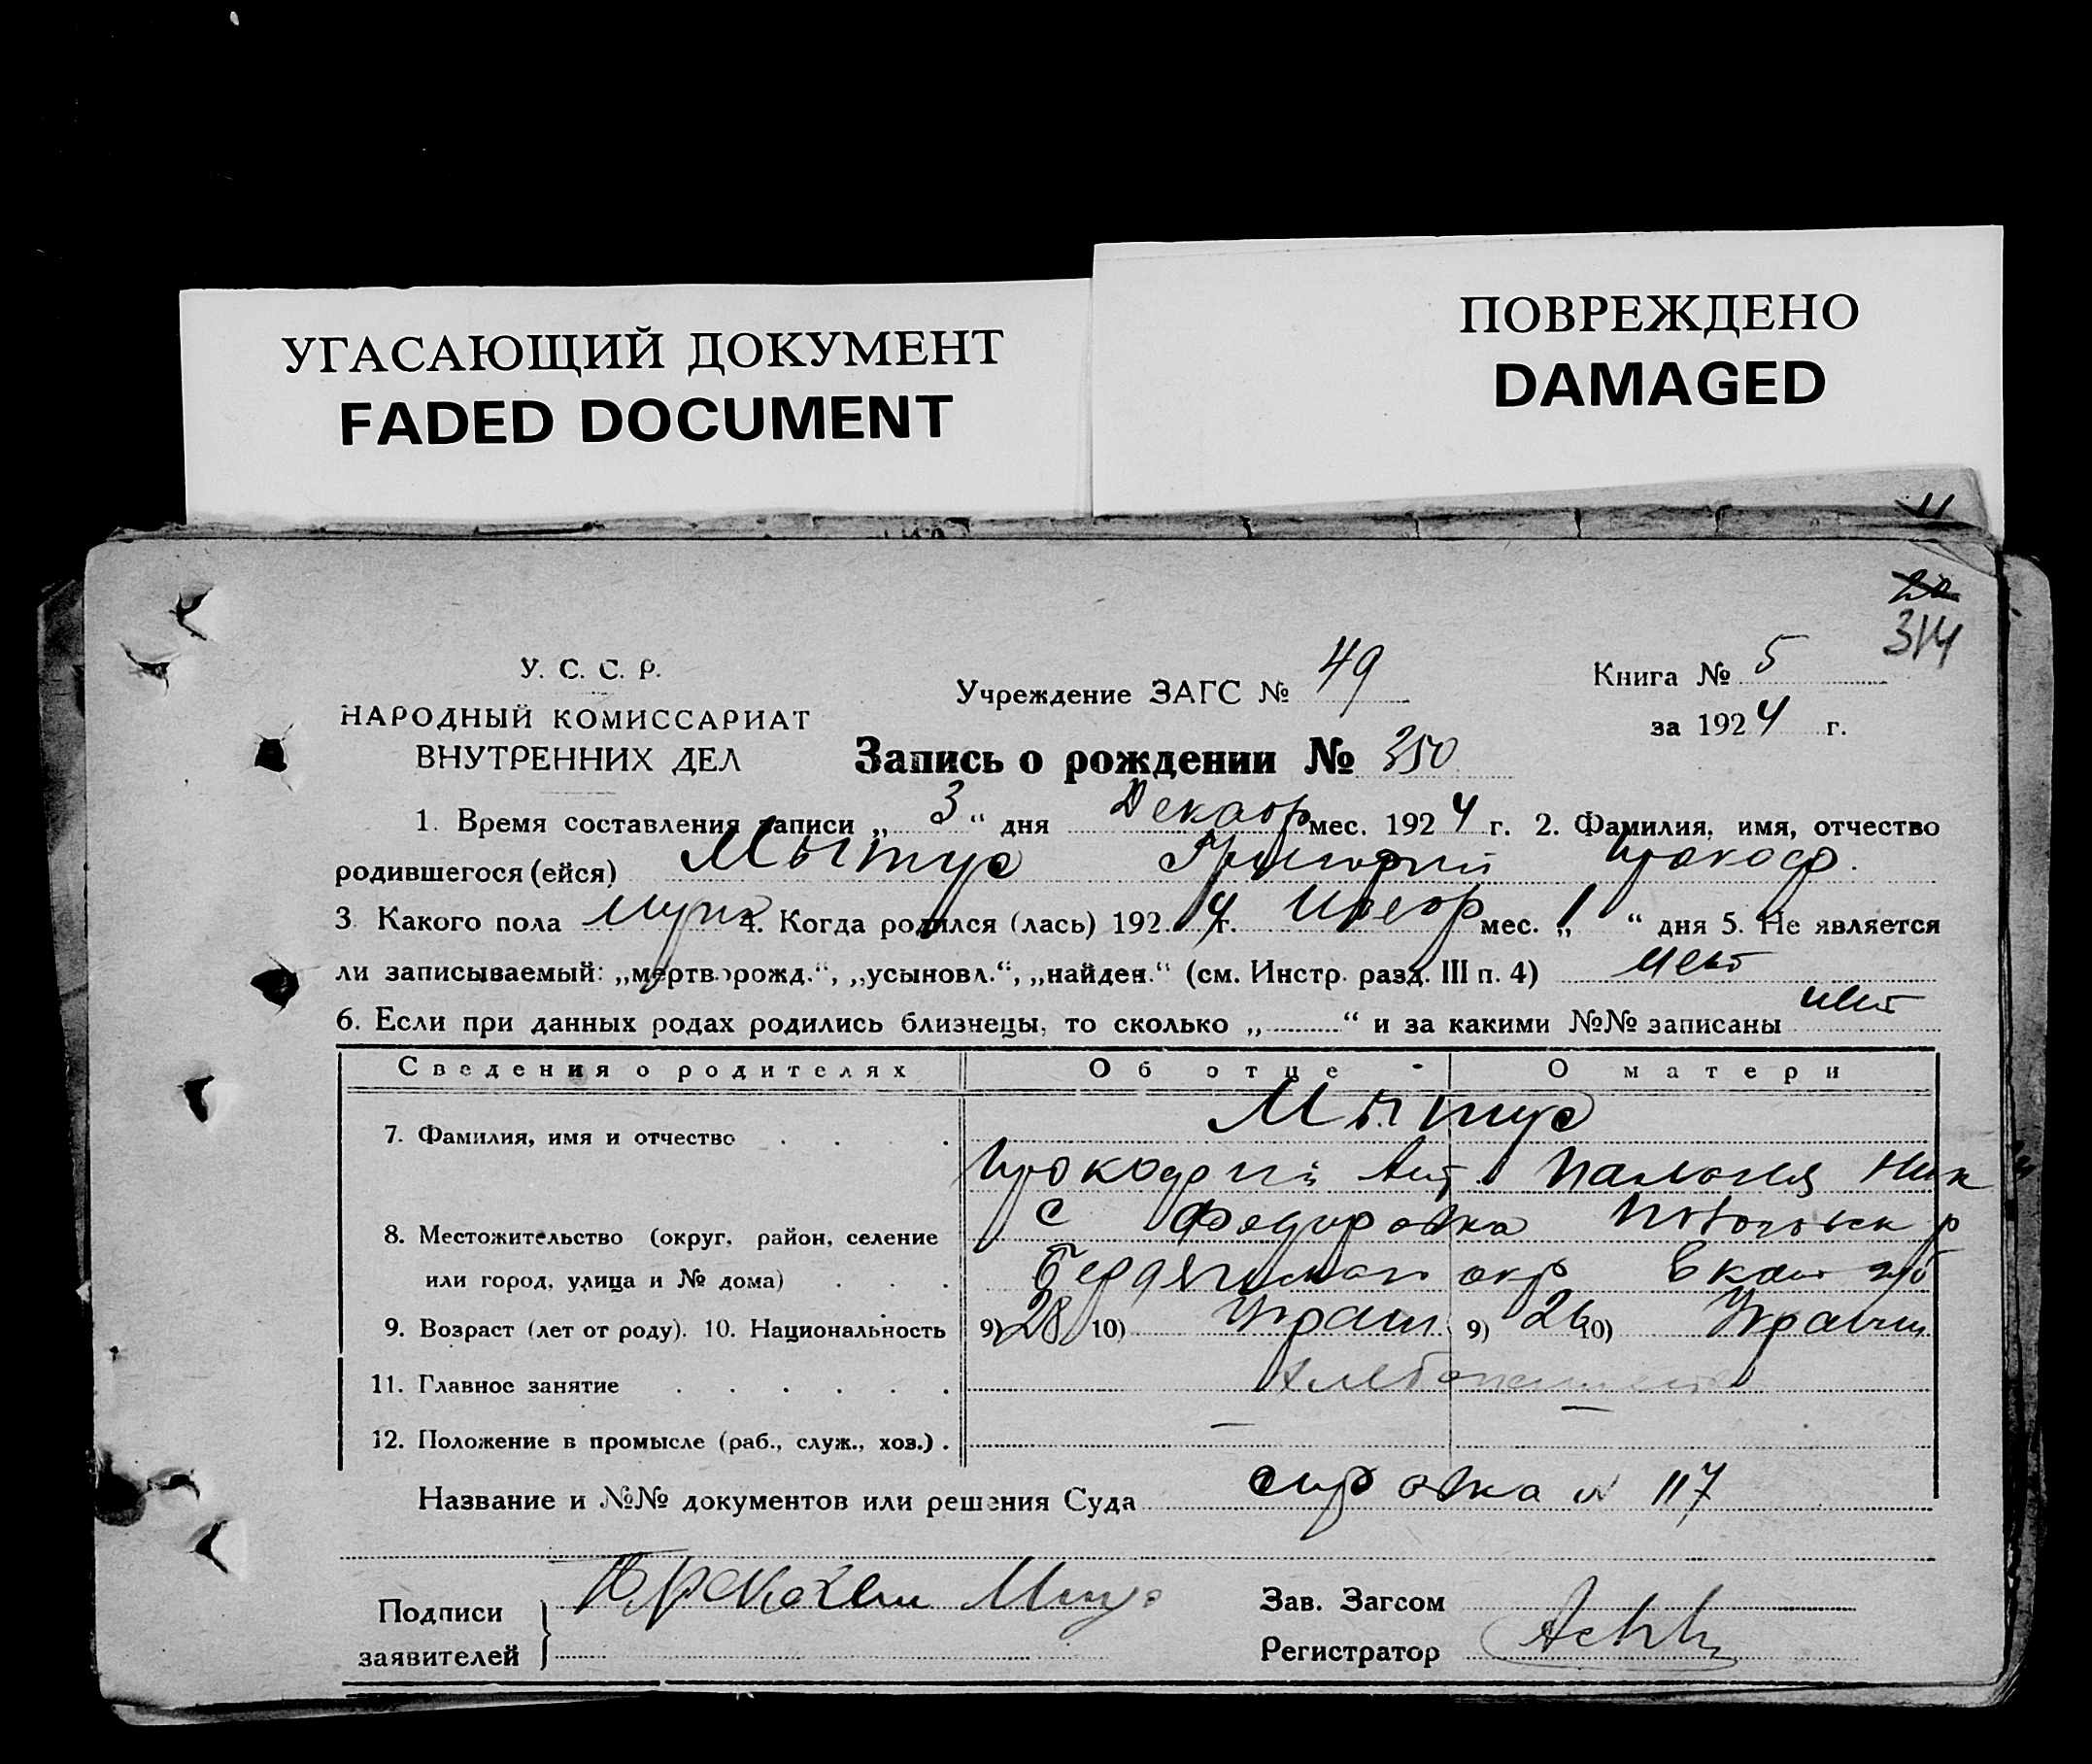 УГАСАЮЩИЙ ДОКУМЕНТ
FADED DOCUMENT
ПОВРЕЖДЕНО
DAMAGED
11
20
314
У. С. С. Р.
НАРОДНЫЙ КОМИССАРИАТ
ВНУТРЕННИХ ДЕЛ
Учреждение ЗАГС № 49
Книга № 5
за 1924 г.
Запись о рождении № 350
1. Время составления записи „ 3 “ дня Декабр мес. 1924 г. 2. Фамилия, имя, отчество
родившегося (ейся) Мытус Григорий Прокоф.
3. Какого пола муж 4. Когда родился (лась) 1924 г. Ноябр мес. „ 1 “ дня 5. Не является
ли записываемый: „мертворожд.“, „усыновл.“, „найден.“ (см. Инстр. разд. III п. 4) нет
6. Если при данных родах родились близнецы, то сколько „ “ и за какими №№ записаны нет
Сведения о родителях Об отце О матери
7. Фамилия, имя и отчество Мытус
Прокофий Ант. Ник
8. Местожительство (округ, район, селение с Федоровка р
или город, улица и № дома) Бердянского окр
9. Возраст (лет от роду). 10. Национальность 9) 28 10) Украин 9) 26 10) Украин
11. Главное занятие Хлебопашест
12. Положение в промысле (раб., служ., хоз.) . – –
Название и №№ документов или решения Суда справка N 117
Подписи
заявителей
Зав. Загсом
Регистратор